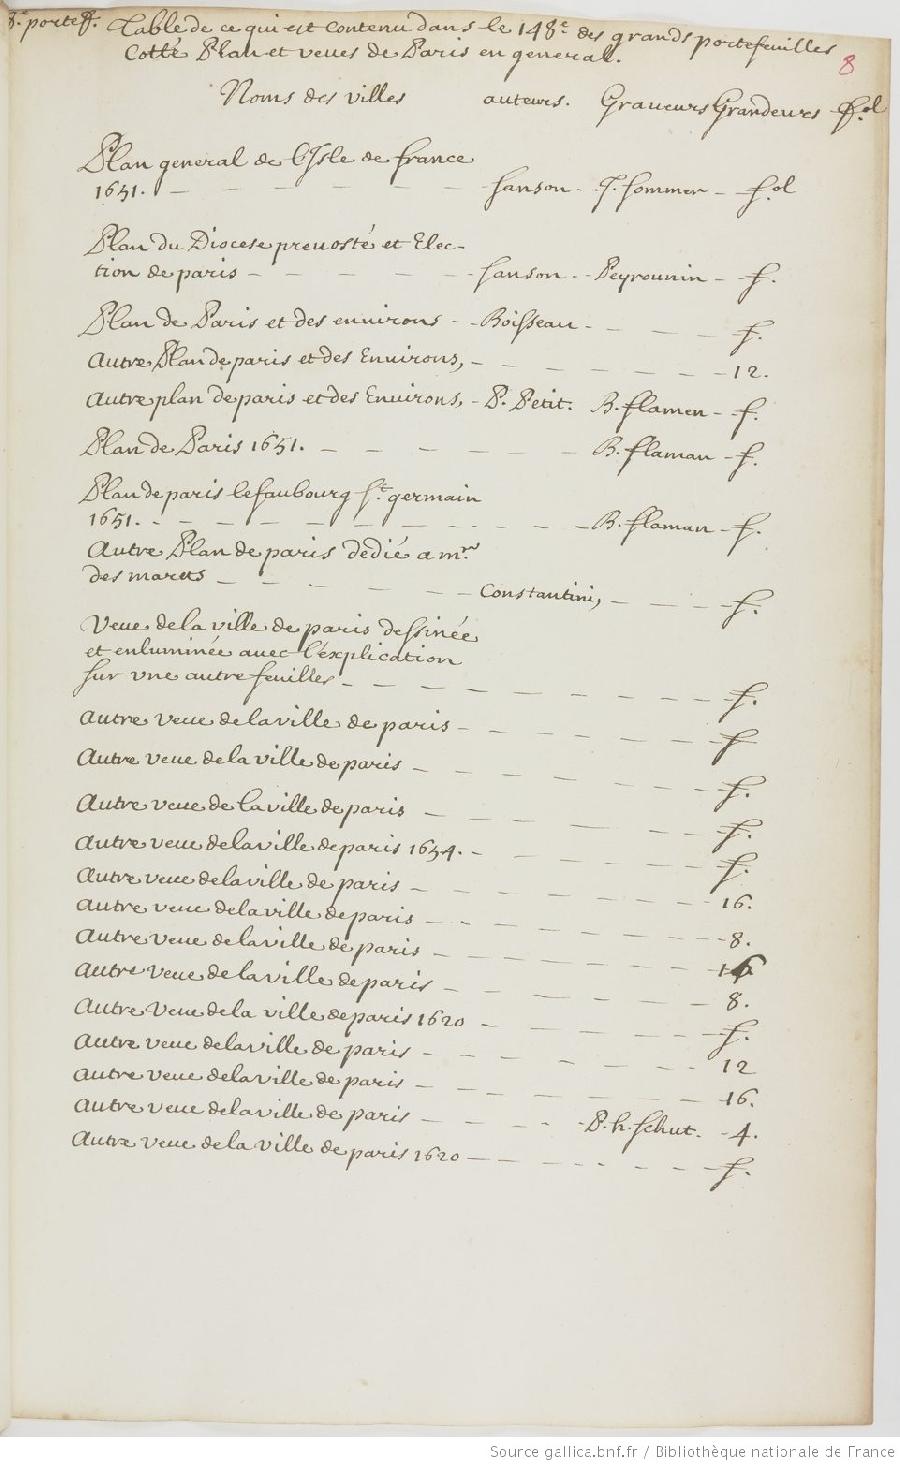 8.e portef. Table de ce qui est contenu dans le 148e des grands portefeuilles
8
Cotté Plan et veues de Paris en general.
Noms des villes auteurs. Graveurs Grandeurs fol
Plan general de l'Isle de france
1651. - - - - - - Sanson - J. Sommer - fol
Plan du Diocese prevosté et Elec-
tion de paris - - - - - Sanson - - Peyrounin - f.
Plan de Paris et des environs - Boisseau - - - - f.
Autre Plan de paris et des Environs, - - - - - - - 12.
Autre plan de paris et des Environs, - P. Petit. B. flamen - f.
Plan de Paris 1651. - - - - - - B. flaman - f.
Plan de paris le faubourg St. germain
1651. - - - - - - - - - - B. flaman - f.
Autre Plan de paris dedié a mr.
des marets - - - - - Constantini, - - - - f.
Veue de la ville de paris dessinée
et enluminée avec l'éxplication
sur vne autre feuilles - - - - - - - - - f.
Autre veue de la ville de paris - - - - - - - f
Autre veue de la ville de paris - - - - - - - f.
Autre veue de la ville de paris - - - - - - - f.
Autre veue de la ville de paris 1654. - - - - - - f.
Autre veue de la ville de paris - - - - - - - 16.
Autre veue de la ville de paris - - - - - - - 8.
Autre veue de la ville de paris - - - - - - - 16
Autre veue de la ville de paris - - - - - - - 8.
Autre veue de la ville de paris 1620 - - - - - - f.
Autre veue de la ville de paris - - - - - - - 12
Autre veue de la ville de paris - - - - - - - 16.
Autre veue de la ville de paris - - - - - P. h. Schut. - 4.
Autre veue de la ville de paris 1620 - - - - - - - f.
Source gallica.bnf.fr / Bibliothèque nationale de France